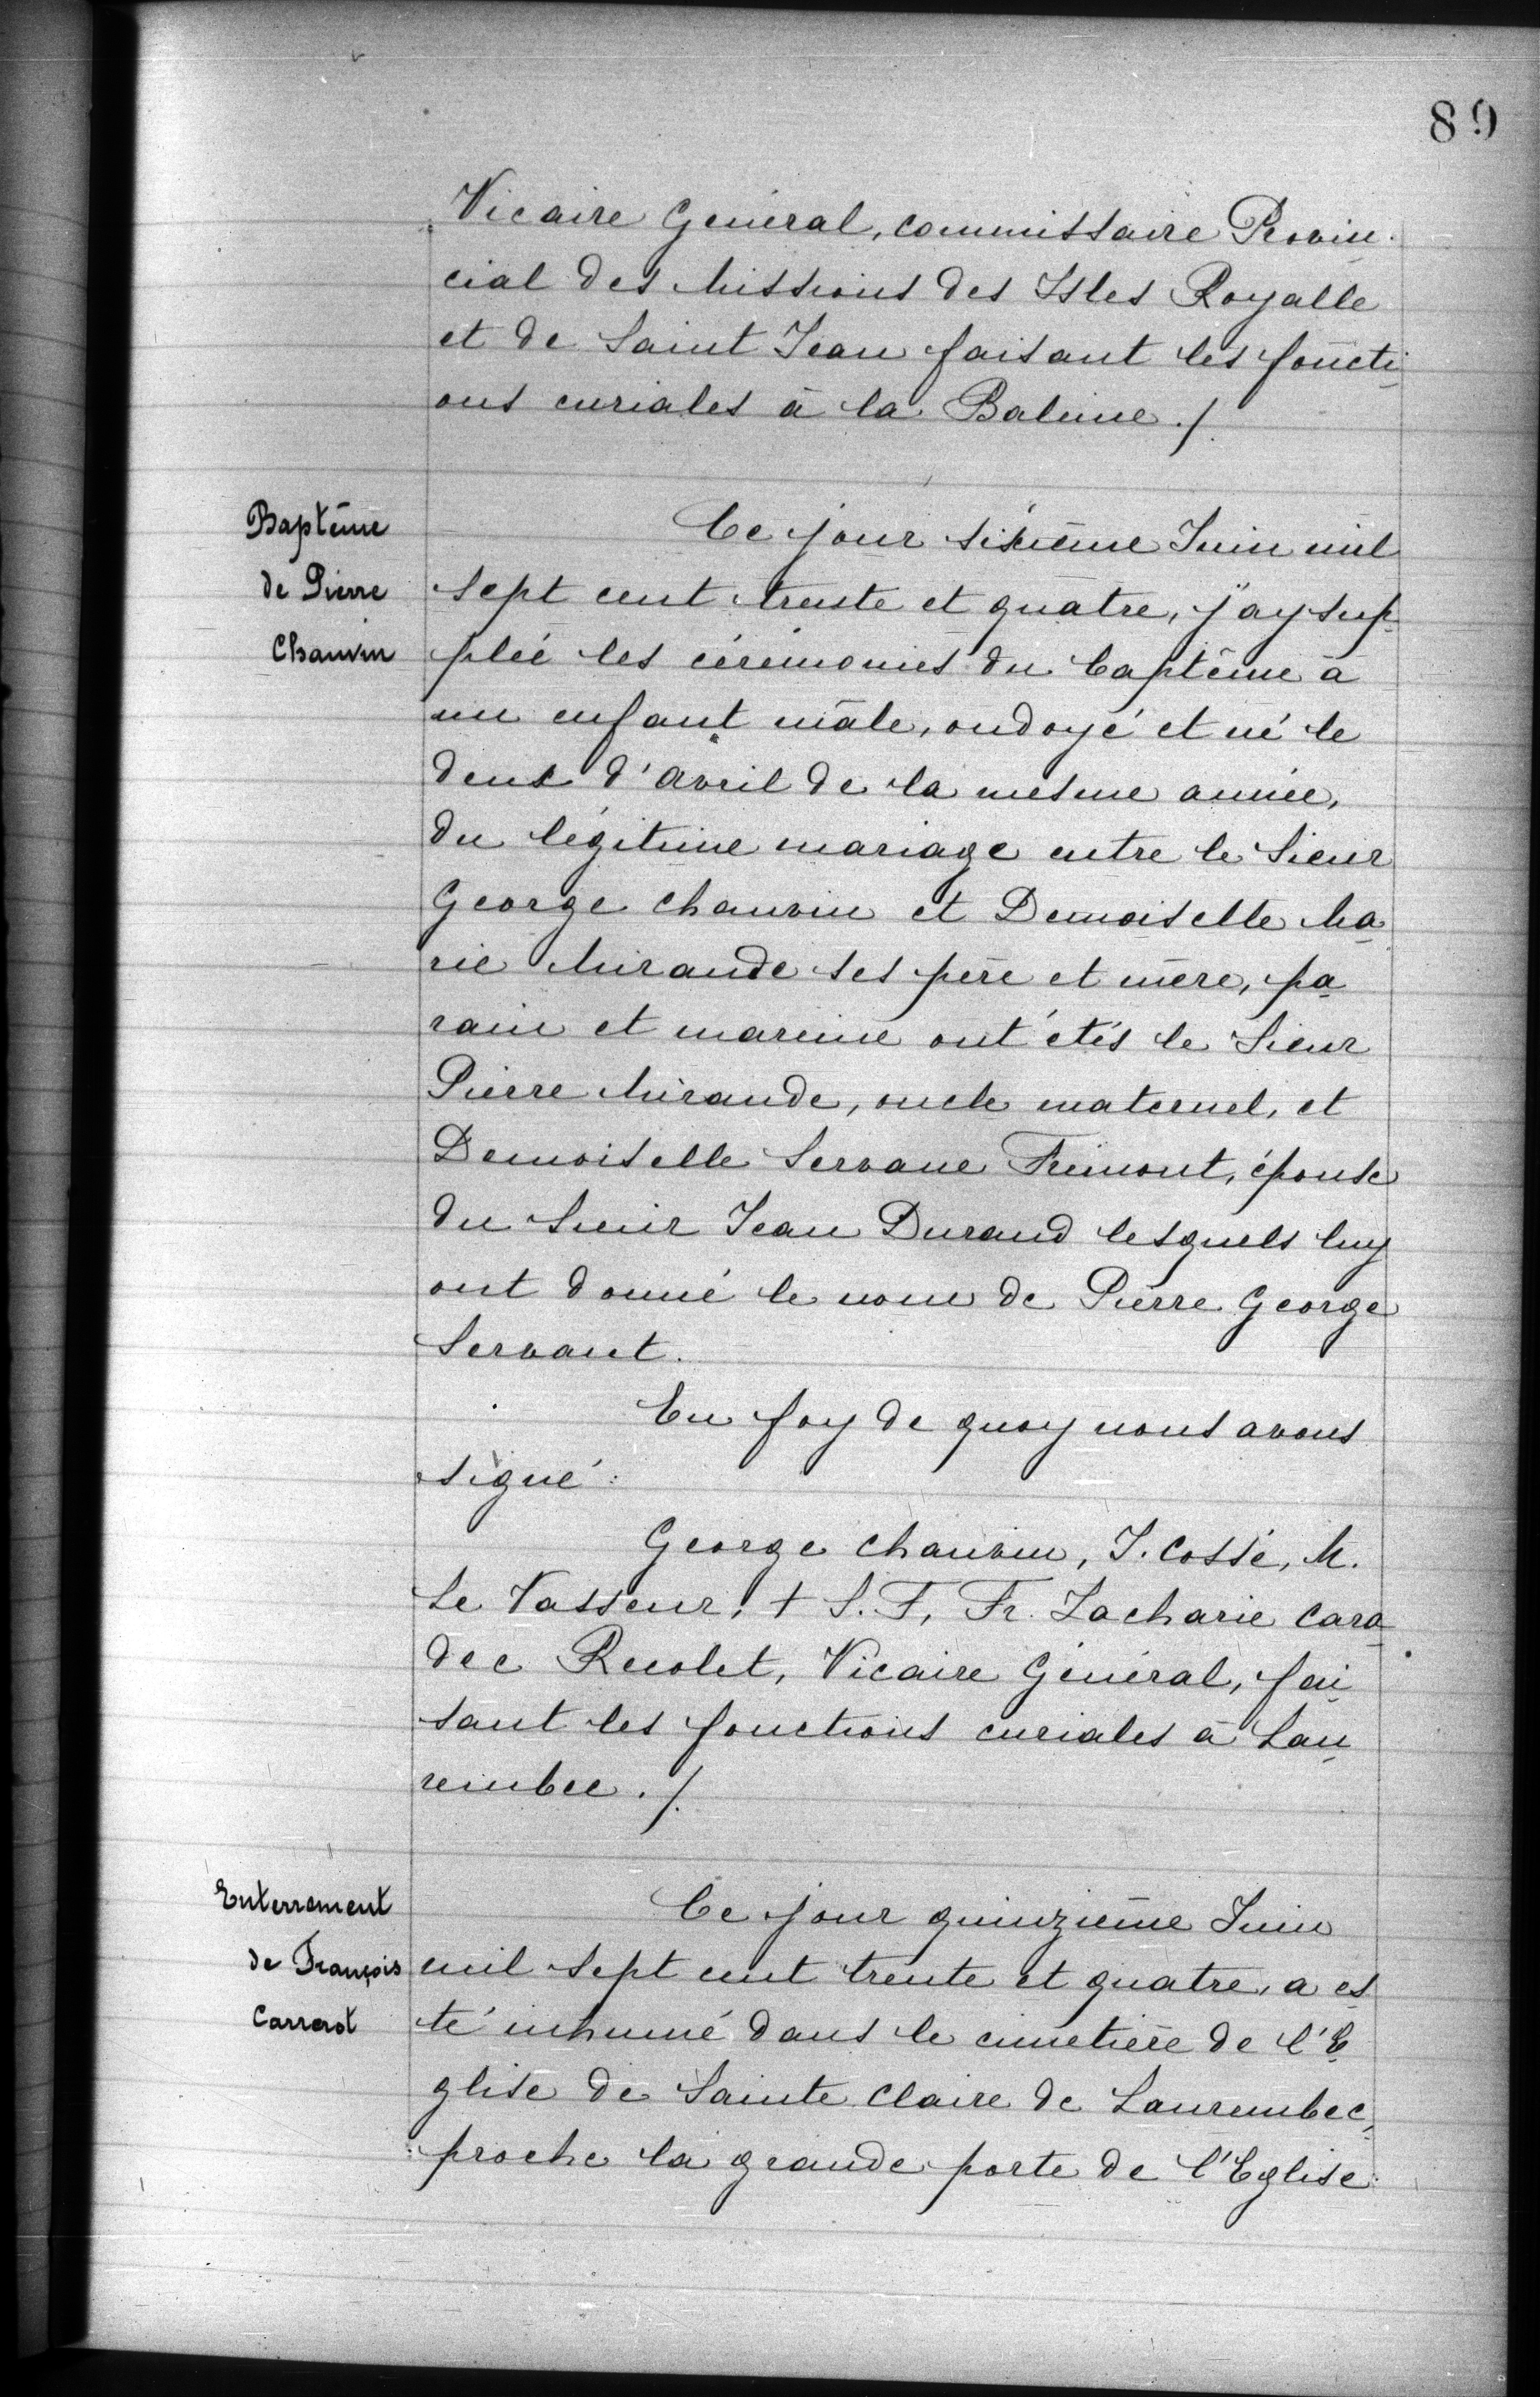 89
Vicaire Général, commissaire Provin-
cial des Missions des Isles Royalle
et de Saint Jean faisant les foncti-
ons curiales à la Baleine ./.
Baptême
de Pierre
Chauvin
Ce jour sixième Juin mil
sept cent trente et quatre, j'ay sup-
pléé les cérémonies du baptême à
un enfant mâle, ondoyé et né le
deux d'Avril de la mesme année,
du légitime mariage entre le Sieur
George Chauvin et Demoiselle Ma-
rie Mirande ses père et mère, pa-
rain et mareine ont étés le Sieur
Pierre Mirande, oncle maternel, et
Demoiselle Servane Frimont, épouse
du Sieur Jean Durand lesquels luy
ont donné le nom de Pierre George
Servant.
En foy de quoy nous avons
signé :
George Chauvin, J. Cossé, M.
Le Vasseur, + S. F, Fr. Zacharie Cara-
dec Recolet, Vicaire Général, fai-
sant les fonctions curiales à Lau-
rembec ./.
Enterrement
de François
Carrerot
Ce jour quinzième Juin
mil sept cent trente et quatre, a es-
té inhumé dans le cimetière de l'E-
glise de Sainte Claire de Laurembec,
proche la grande porte de l'Eglise